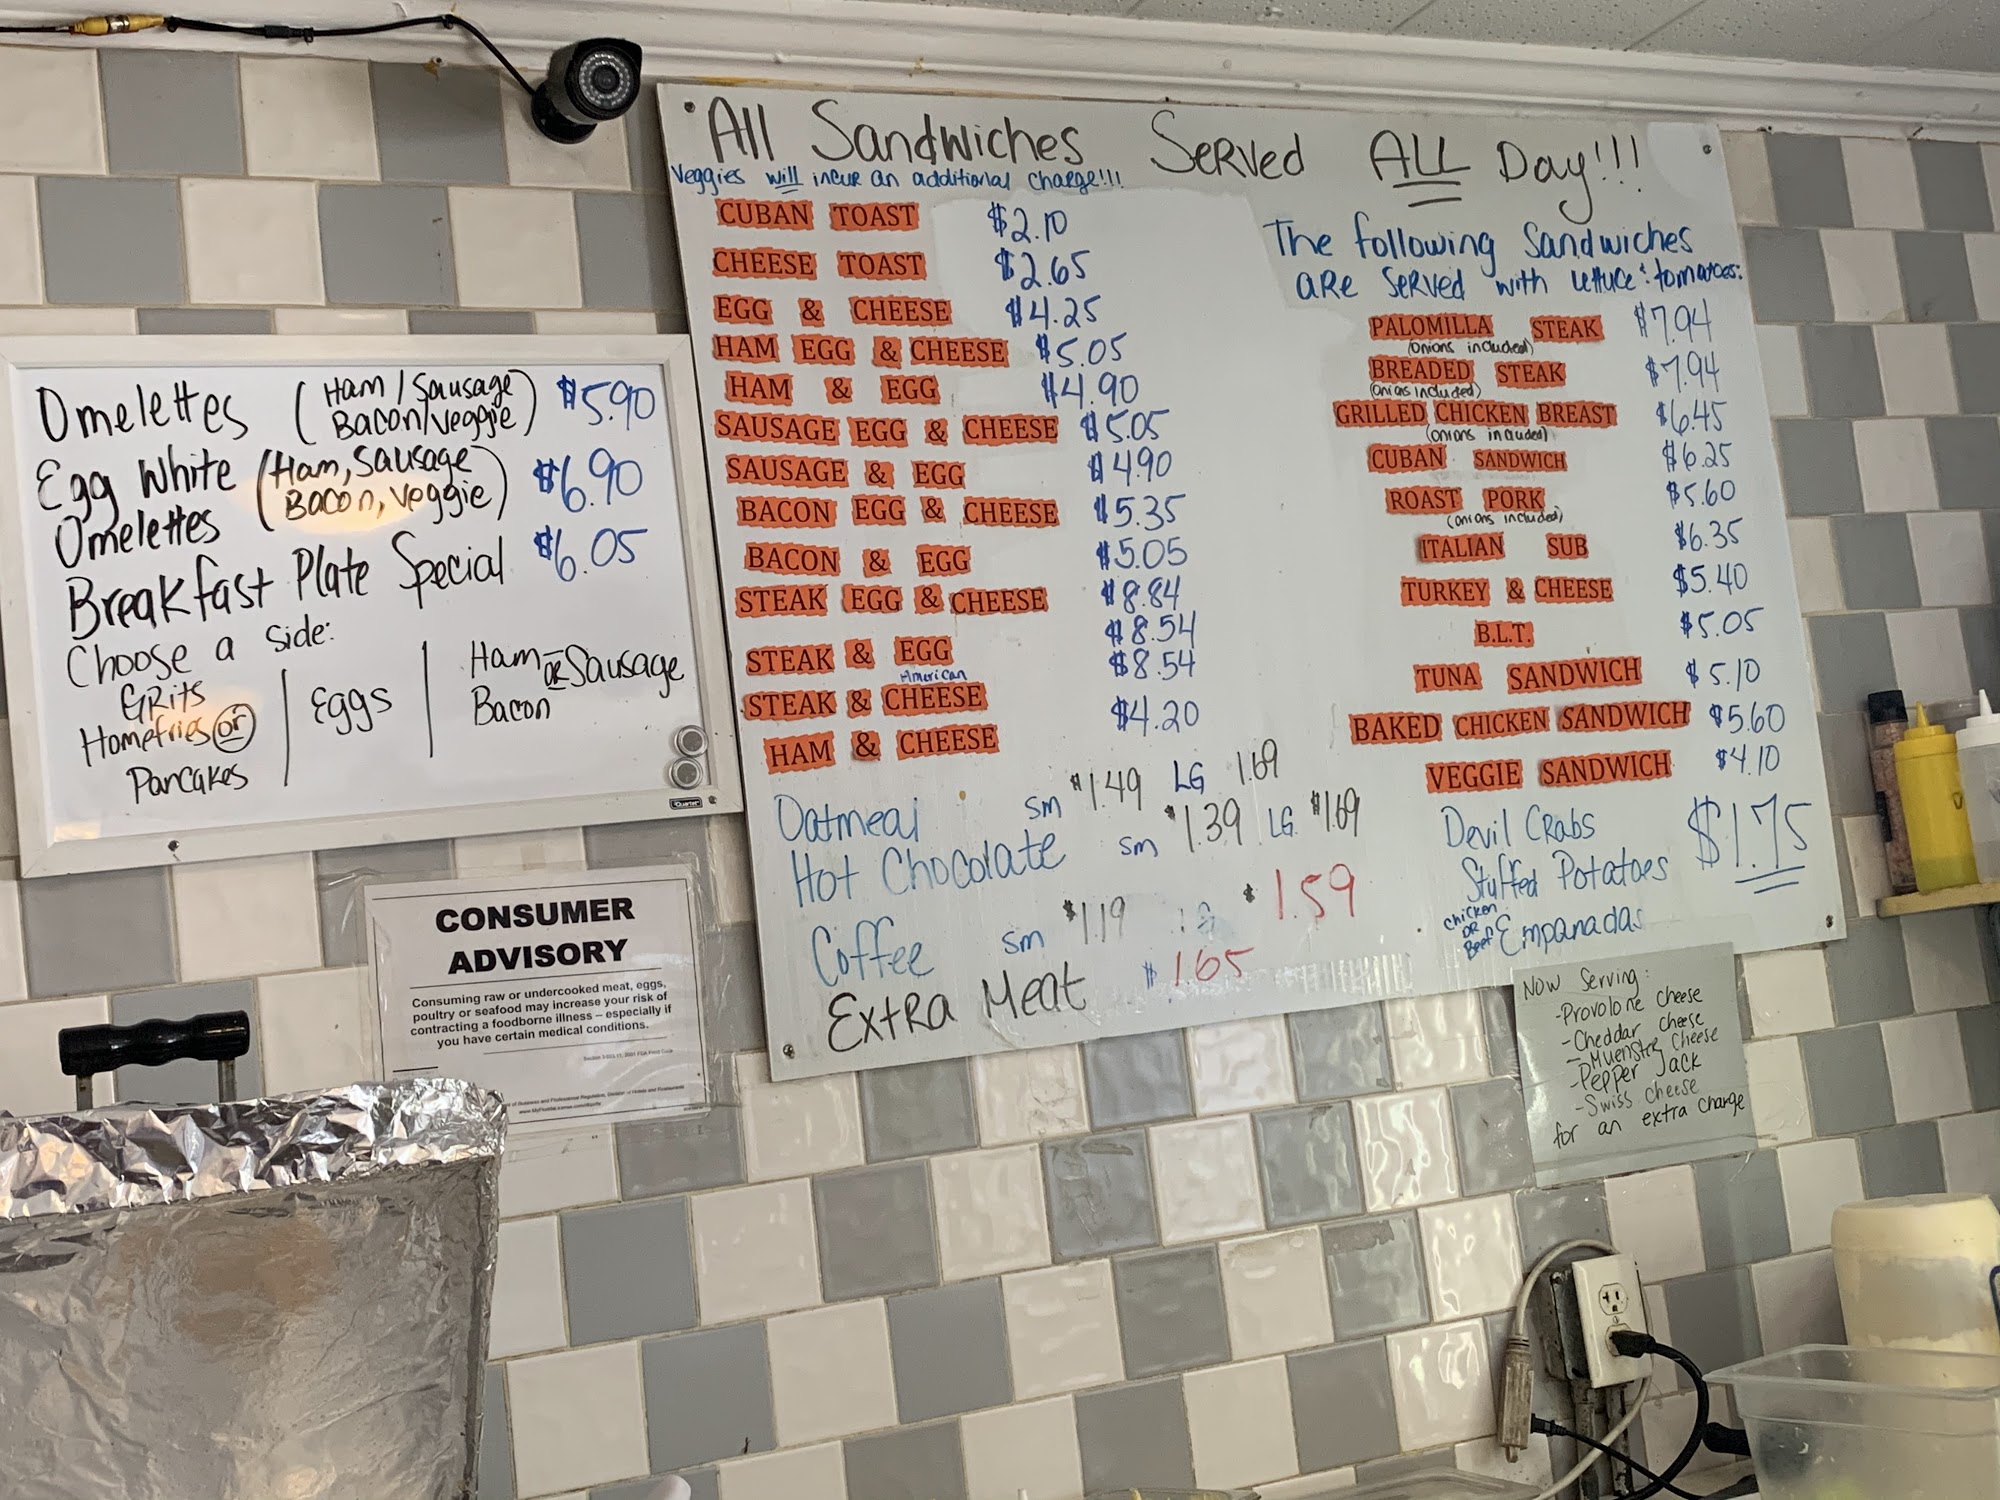 Omelettes (Ham/Sausage Bacon/Veggie) $5.90
Egg White Omelettes (Ham, Sausage Bacon, Veggie) $6.90
Breakfast Plate Special $6.05
Choose a side:
Grits
Homefries or
Pancakes
Eggs
Ham or Sausage
Bacon
Quartet
CONSUMER
ADVISORY
Consuming raw or undercooked meat, eggs,
poultry or seafood may increase your risk of
contracting a foodborne illness – especially if
you have certain medical conditions.
All Sandwiches Served ALL Day!!!
Veggies will incur an additional charge!!!
CUBAN TOAST $2.10
CHEESE TOAST $2.65
EGG & CHEESE $4.25
HAM EGG & CHEESE $5.05
HAM & EGG $4.90
SAUSAGE EGG & CHEESE $5.05
SAUSAGE & EGG $4.90
BACON EGG & CHEESE $5.35
BACON & EGG $5.05
STEAK EGG & CHEESE $8.84
STEAK & EGG $8.54
American
STEAK & CHEESE $8.54
HAM & CHEESE $4.20
Oatmeal sm $1.49 LG 1.69
Hot Chocolate sm $1.39 LG $1.69
Coffee sm $1.19 LG $1.59
Extra Meat $1.65
The following Sandwiches
are served with lettuce & tomatoes:
PALOMILLA STEAK $7.94
(onions included)
BREADED STEAK $7.94
(onions included)
GRILLED CHICKEN BREAST $6.45
(onions included)
CUBAN SANDWICH $6.25
ROAST PORK $5.60
(onions included)
ITALIAN SUB $6.35
TURKEY & CHEESE $5.40
B.L.T. $5.05
TUNA SANDWICH $5.10
BAKED CHICKEN SANDWICH $5.60
VEGGIE SANDWICH $4.10
Devil Crabs
Stuffed Potatoes $1.75
chicken or Beef Empanadas
Now Serving:
-Provolone cheese
-Cheddar cheese
-Muenstre Cheese
-Pepper Jack
-Swiss cheese
for an extra charge